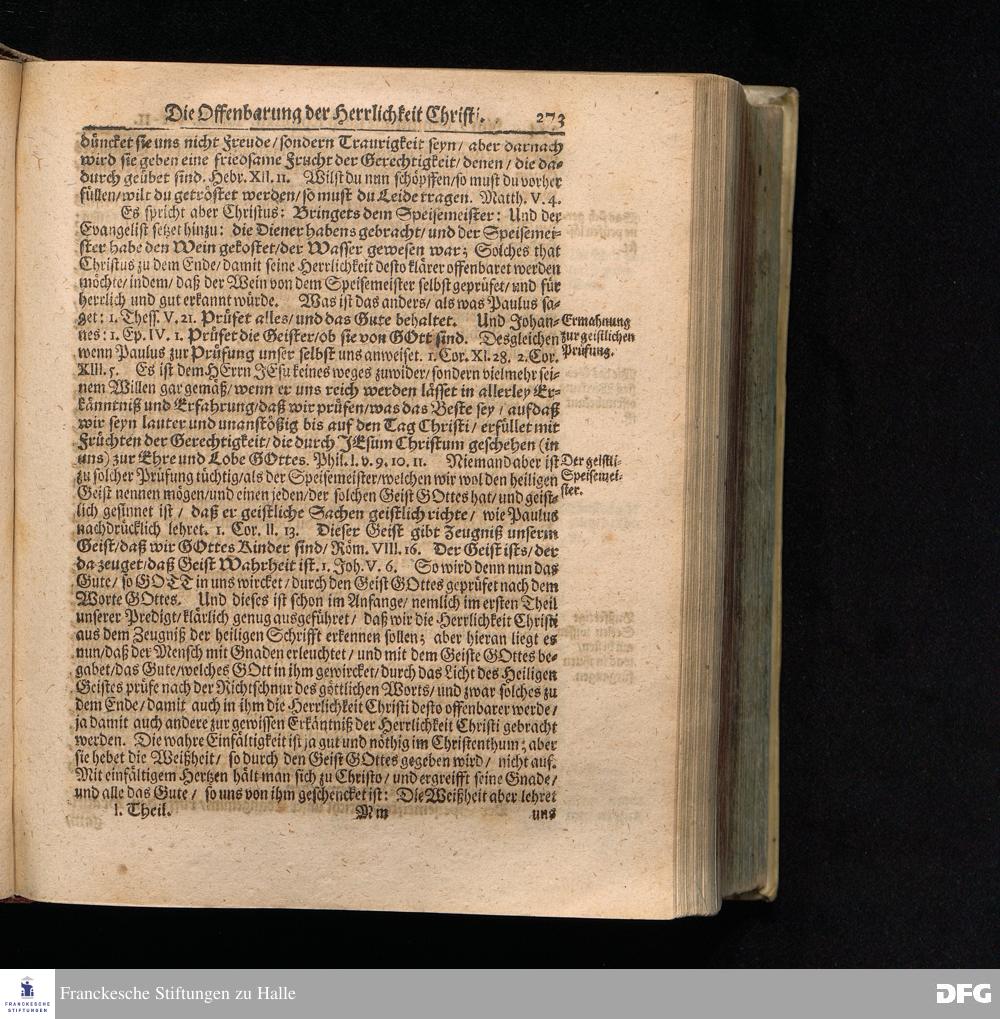 Die Offenbarung der Herrlichkeit Christi. 273
düncket sie uns nicht Freude/sondern Traurigkeit seyn/ aber darnach
wird sie geben eine friedsame Frucht der Gerechtigkeit/denen/ die da-
durch geübet sind. Hebr. XII. 11. Wilst du nun schöpffen/so must du vorher
füllen/wilt du getröstet werden/so must du Leide tragen. Matth. V. 4.
Es spricht aber Christus: Bringets dem Speisemeister: Und der
Evangelist setzet hinzu: die Diener habens gebracht/ und der Speisemei-
ster habe den Wein gekostet/der Wasser gewesen war; Solches that
Christus zu dem Ende/damit seine Herrlichkeit desto klärer offenbaret werden
möchte/indem/ daß der Wein von dem Speisemeister selbst geprüfet/ und für
herrlich und gut erkannt würde. Was ist das anders/ als was Paulus sa-
get: 1. Thess. V. 21. Prüfet alles/ und das Gute behaltet. Und Johan-
nes: 1. Ep. IV. 1. Prüfet die Geister/ob sie von GOtt sind. Desgleichen
wenn Paulus zur Prüfung unser selbst uns anweiset. 1. Cor. XI. 28. 2. Cor.
XIII. 5. Es ist dem HErrn JEsu keines weges zuwider/ sondern vielmehr sei-
nem Willen gar gemäß/ wenn er uns reich werden lässet in allerley Er-
känntniß und Erfahrung/daß wir prüfen/was das Beste sey/ auf daß
wir seyn lauter und unanstößig bis auf den Tag Christi/ erfüllet mit
Früchten der Gerechtigkeit/ die durch JEsum Christum geschehen (in
uns) zur Ehre und Lobe GOttes. Phil. I. v. 9. 10. 11. Niemand aber ist
zu solcher Prüfung tüchtig/als der Speisemeister/welchen wir wol den heiligen
Geist nennen mögen/und einen jeden/der solchen Geist GOttes hat/ und geist-
lich gesinnet ist/ daß er geistliche Sachen geistlich richte/ wie Paulus
nachdrücklich lehret. 1. Cor. II. 13. Dieser Geist gibt Zeugniß unserm
Geist/daß wir GOttes Kinder sind/ Röm. VIII. 16. Der Geist ists/ der
da zeuget/daß Geist Wahrheit ist. 1. Joh. V. 6. So wird denn nun das
Gute/ so GOTT in uns wircket/ durch den Geist GOttes geprüfet nach dem
Worte GOttes. Und dieses ist schon im Anfange/ nemlich im ersten Theil
unserer Predigt/ klärlich genug ausgeführet/ daß wir die Herrlichkeit Christi
aus dem Zeugniß der heiligen Schrifft erkennen sollen; aber hieran liegt es
nun/daß der Mensch mit Gnaden erleuchtet/ und mit dem Geiste GOttes be-
gabet/das Gute/welches GOtt in ihm gewircket/durch das Licht des Heiligen
Geistes prüfe nach der Richtschnur des göttlichen Worts/ und zwar solches zu
dem Ende/ damit auch in ihm die Herrlichkeit Christi desto offenbarer werde/
ja damit auch andere zur gewissen Erkäntniß der Herrlichkeit Christi gebracht
werden. Die wahre Einfältigkeit ist ja gut und nöthig im Christenthum; aber
sie hebet die Weißheit/ so durch den Geist GOttes gegeben wird/ nicht auf.
Mit einfältigem Hertzen hält man sich zu Christo/ und ergreifft seine Gnade/
und alle das Gute/ so uns von ihm geschencket ist: Die Weißheit aber lehret
I. Theil. Mm uns
Ermahnung
zur geistlichen
Prüfung.
Der geistli-
Speisemei-
ster.
Franckesche Stiftungen zu Halle
FRANCKESCHE
STIFTUNGEN
DFG